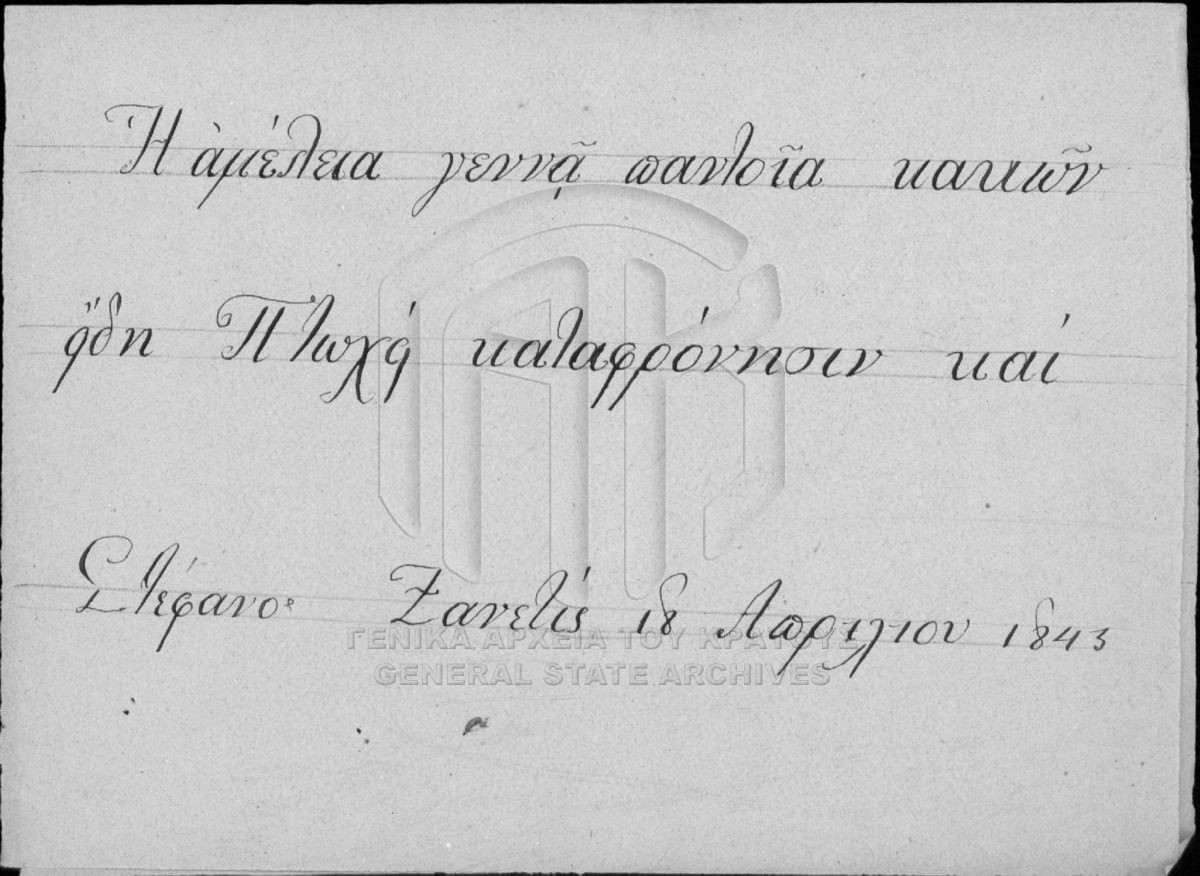 Ἡ ἀμέλεια γεννᾷ παντοῖα κακῶν
Πτωχό καταφρόνησιν καί
Στέφανος Ζανετίς 18 Απριλιου 1843
ΓΕΝΙΚΑ ΑΡΧΕΙΑ ΤΟΥ ΚΡΑΤΟΥΣ
GENERAL STATE ARCHIVES